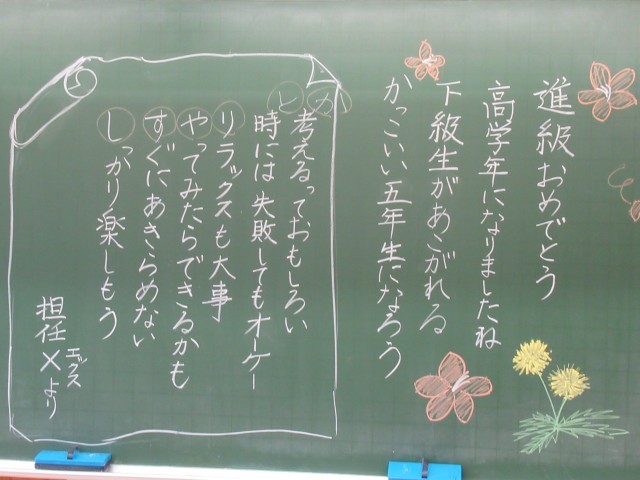 進級おめでとう
高学年になりましたね
下級生があこがれる
かっこいい五年生になろう
か
考えるっておもしろい
と
時には失敗してもオーケー
リラックスも大事
やってみたらできるかも
すぐにあきらめない
しっかり楽しもう
エックス
担任Xより